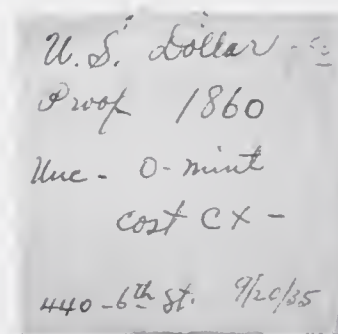 U.S. Dollar -
Proof 1860
Unc - O-mint
cost CX -
440 - 6th St. 9/20/35